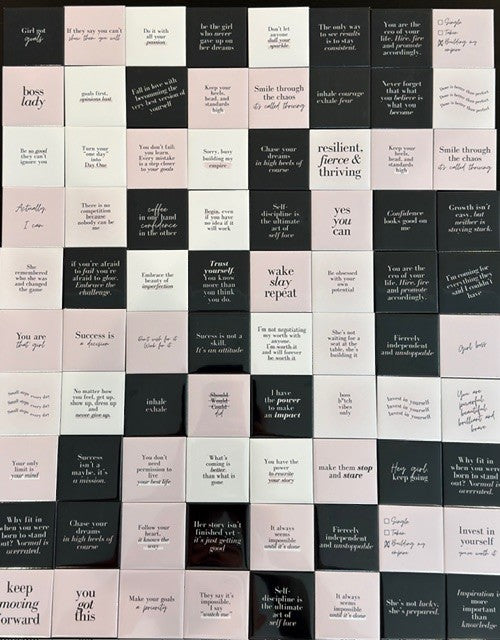 Girl got
goals
If they say you can't
show them you will
Do it with
all your
passion.
be the girl
who never
gave up on
her dreams
Don't let
anyone
dull your
sparkle.
The only way
to see results
is to stay
consistent.
You are the
ceo of your
life. Hire, fire
and promote
accordingly.
Single
Taken
Building my
empire
boss
lady
goals first,
opinions last.
Fall in love with
becoming the
very best version of
yourself
Keep your
heels,
head, and
standards
high
Smile through
the chaos
it's called thriving
inhale courage
exhale fear
Never forget
that what
you believe is
what you
become
Done is better than perfect.
Done is better than perfect.
Done is better than perfect.
Be so good
they can't
ignore you
Turn your
"one day"
into
Day One
You don't fail,
you learn.
Every mistake
is a step closer
to your goals
Sorry, busy
building my
empire.
Chase your
dreams
in high heels of
course
resilient.
fierce &
thriving
Keep your
heels,
head, and
standards
high
Smile through
the chaos
it's called thriving
Actually,
I can
There is no
competition
because
nobody can be
me
coffee
in one hand
confidence
in the other
Begin, even if
you have no
idea if it
will work
Self-
discipline is
the ultimate
act of
self love
yes
you
can
Confidence
looks good on
me
Growth isn't
easy, but
neither is
staying stuck.
She
remembered
who she was
and changed
the game
if you're afraid
to fail you're
afraid to glow.
Embrace the
challenge.
Embrace the
beauty of
imperfection
Trust
yourself.
You know
more than
you think
you do.
wake
slay
repeat
Be obsessed
with your
own
potential
You are the
ceo of your
life. Hire, fire
and promote
accordingly.
I'm coming for
everything they
said I couldn't
have
You are
that girl
Success is
a decision
Don't wish for it
Work for it
Success is not a
skill.
It's an attitude
I'm not negotiating
my worth with
anyone.
I'm worth it
and will forever
be worth it
She's not
waiting for a
seat at the
table, she's
building it
Fiercely
independent
and unstoppable
Girl boss
Small steps every day
Small steps every day
Small steps every day
No matter how
you feel, get up,
show up, dress up
and
never give up.
inhale
exhale
Should
Would
Could
did
I have
the power
to make
an impact
boss
b*tch
vibes
only
Invest in yourself
Invest in yourself
Invest in yourself
You are
powerful
beautiful
brilliant
brave
Your only
limit is
your mind
Success
isn't a
maybe, it's
a mission.
You don't
need
permission to live
your best life.
What's
coming is
better
than what is
gone
You have
the power
to rewrite
your story
make them stop
and stare
Hey girl
keep going
Why fit in
when you were
born to stand
out? Normal is
overrated.
Why fit in
when you were
born to stand
out? Normal is
overrated.
Chase your
dreams
in high heels of
course
Follow your
heart,
it knows the
way
Her story isn't
finished yet
it's just getting
good
It always
seems
impossible
until it's done
Fiercely
independent
and unstoppable
Single
Taken
Building my
empire
Invest in
yourself
you're worth it
keep
moving
forward
you
got
this
Make your goals
a priority
They say it's
impossible,
I say
"watch me"
Self-
discipline is
the ultimate
act of
self love
It always
seems
impossible
until it's done
She's not lucky,
she's prepared.
Inspiration is
more
important
than
knowledge